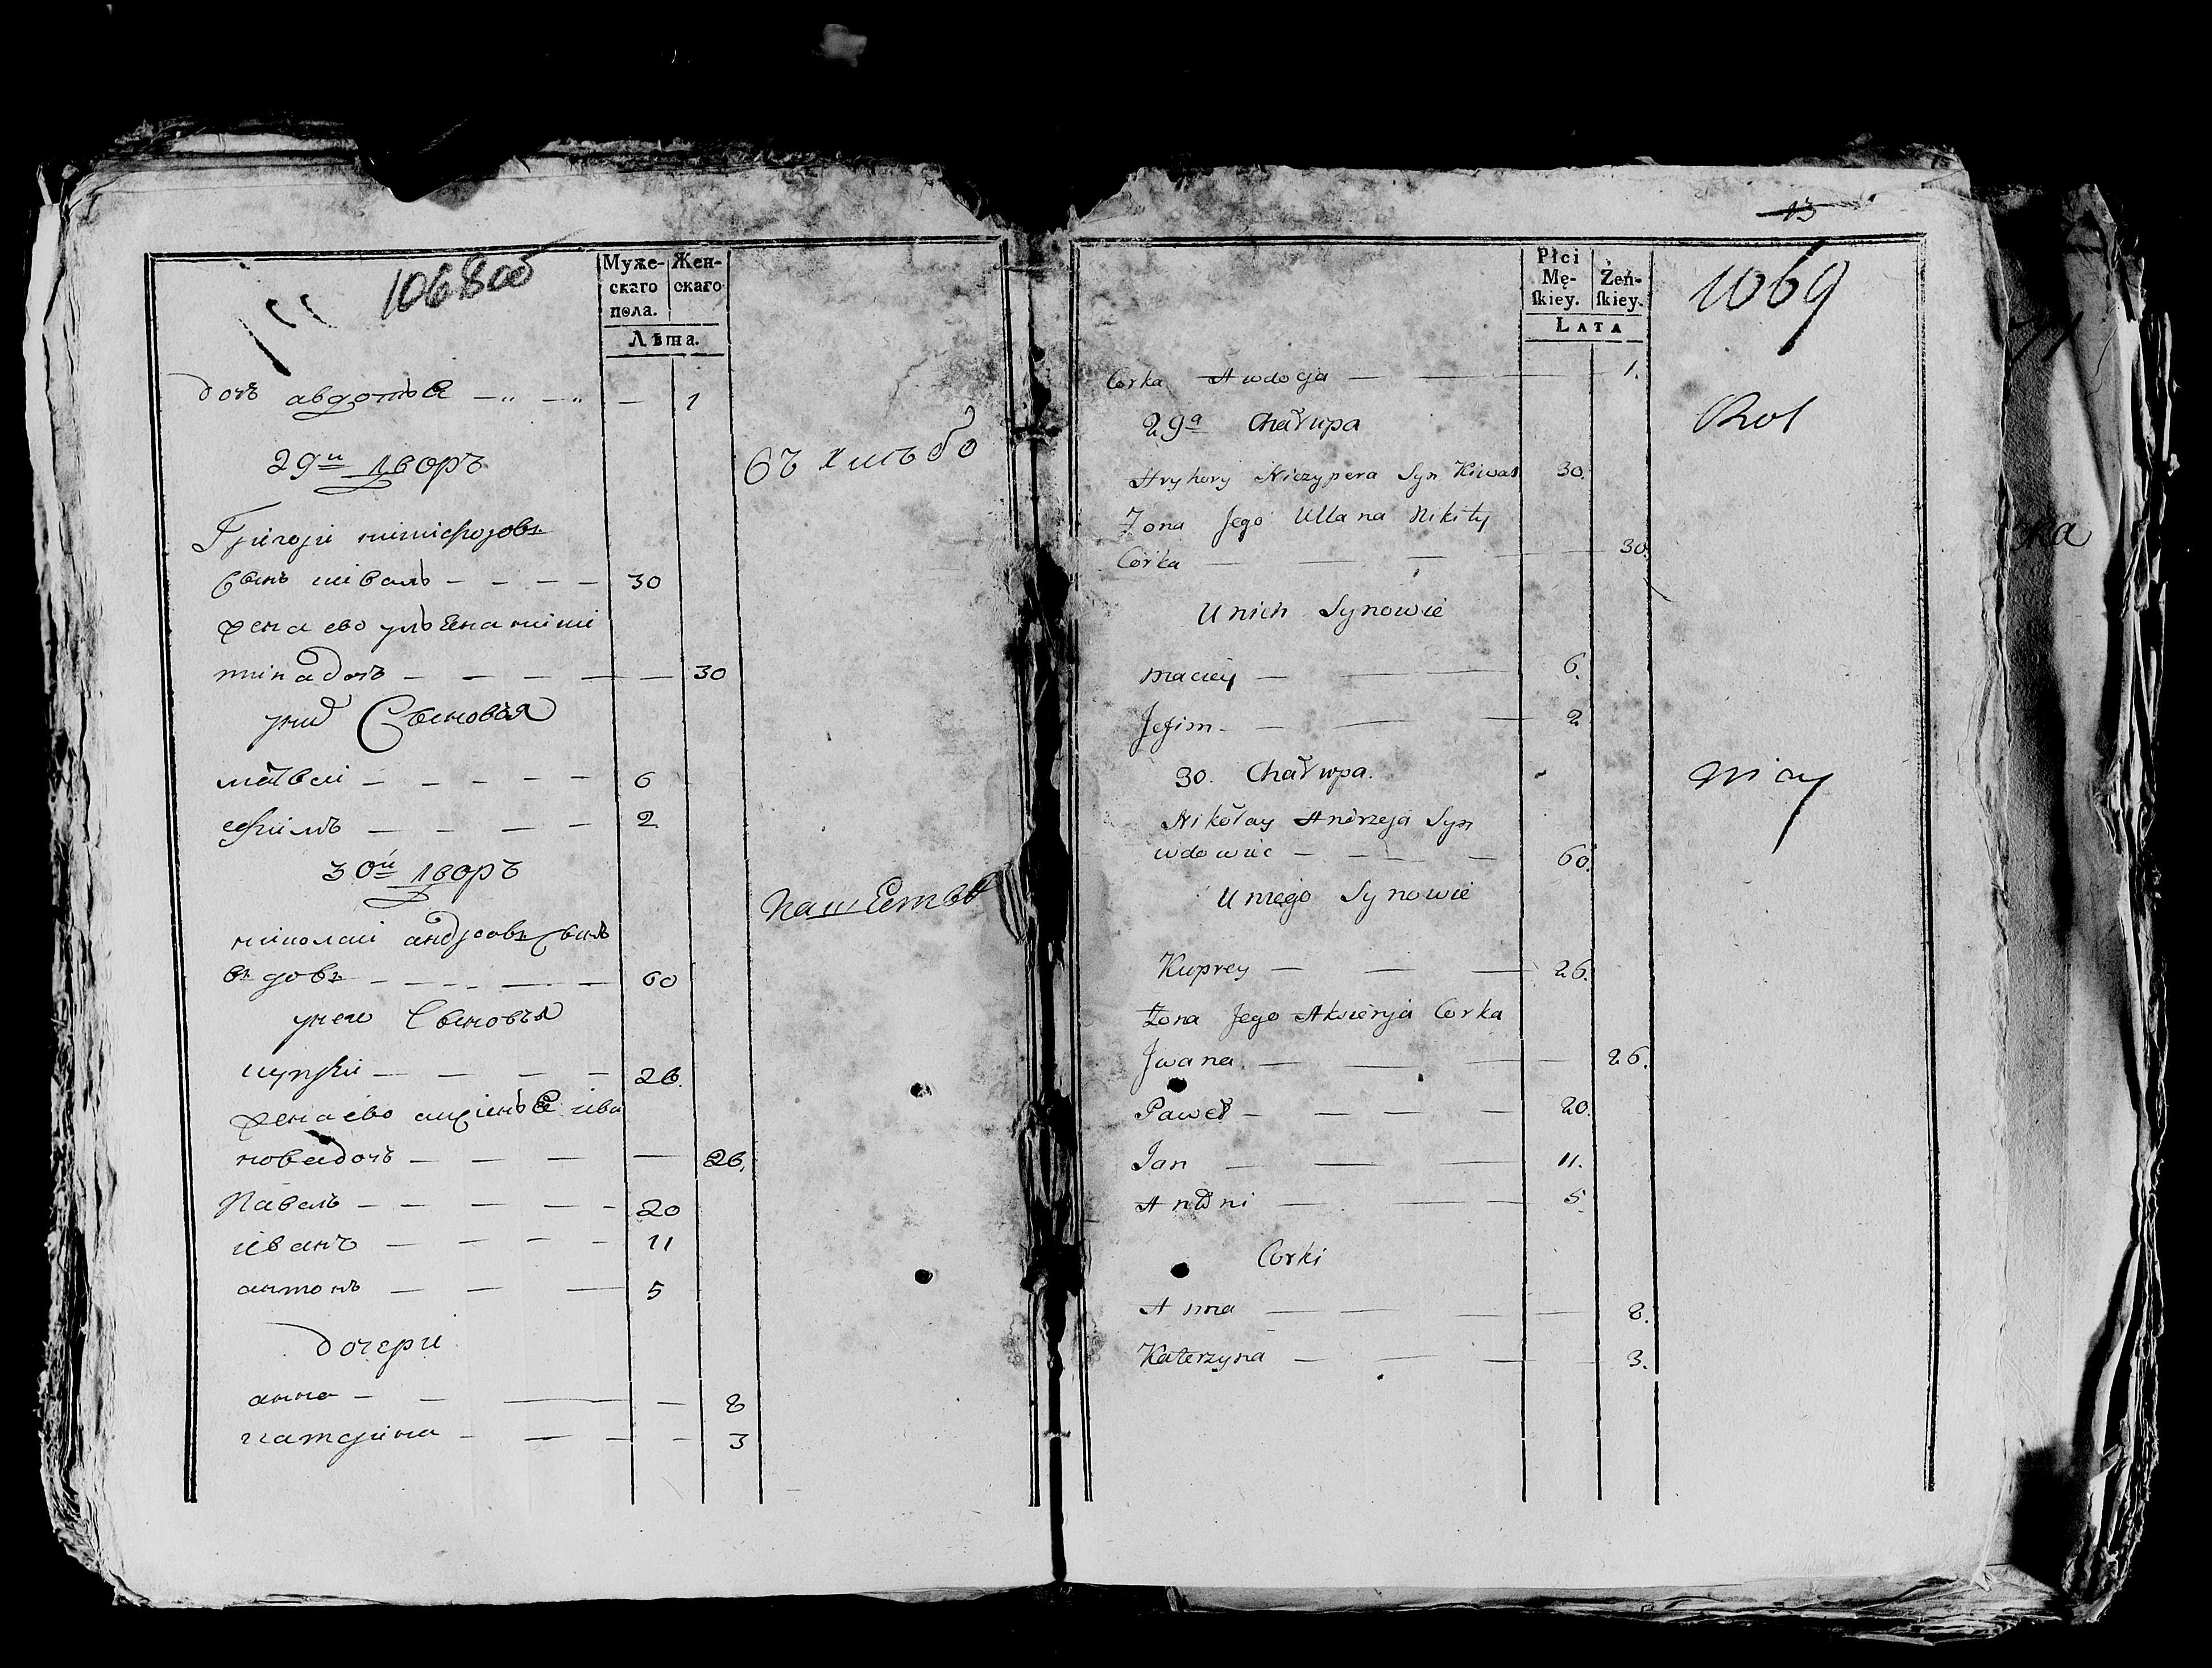 1068об
Муже-
скаго
пола.
Жен-
скаго
Лѣта.
дочь авдотья — 1
29й дворъ
Григори ничипоровъ
Сынъ киваль — 30
жена ево ульяна ники
тина дочь — 30
у них Сыновья
матвеи — 6
ефимъ — 2
30й дворъ
николаи андреовъ Сынъ
въдовъ — 60
у него Сыновья
куприи — 26.
жена ево аксенья ива
нова дочь — 26.
Павелъ — 20
иванъ — 11
антонъ — 5
дочери
анна — 8
катерина — 3
13
Płci
Mę-
ſkiey.
Żeń-
ſkiey.
LATA
1069
Corka Awdocja — 1.
29a Chałupa
Hryhory Niczypera Syn Kiwal 30.
Żona Jego Ullana Nikity
Corka — 30.
U nich Synowie
Maciey — 6.
Jefim — 2
30. Chałupa.
Nikołay Andrzeja Syn
wdowiec — 60.
U niego Synowie
Kuprey — 26.
Żona Jego Aksienja Corka
Jwana. — 26.
Paweł — 20.
Jan — 11.
Antoni — 5.
Corki
Anna — 8.
Katerzyna — 3.